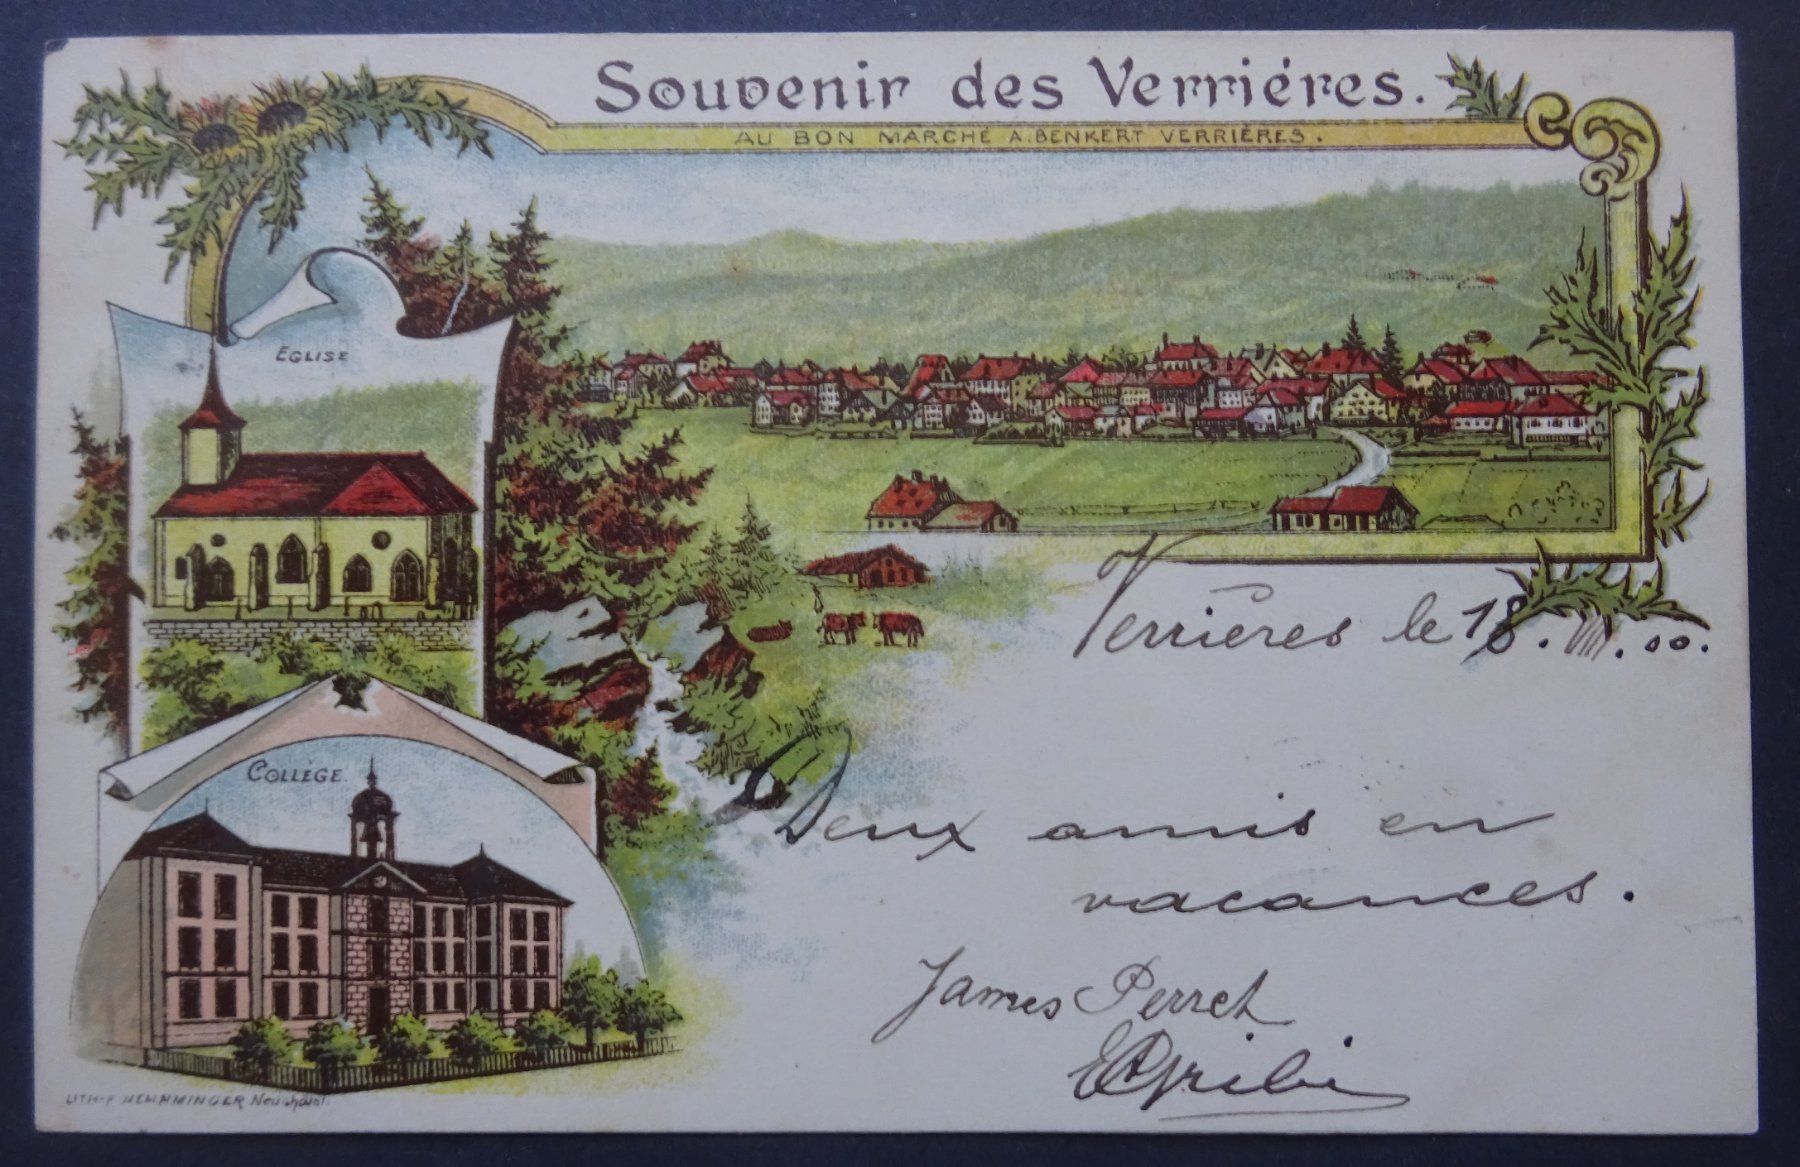 Souvenir des Verriéres.
AU BON MARCHÉ A. BENKERT VERRIÈRES.
EGLISE
COLLÈGE.
Verrières le 18. VIII. 00.
Deux amis en
vacances.
James Perret
LITH. F. Neuchâtel.